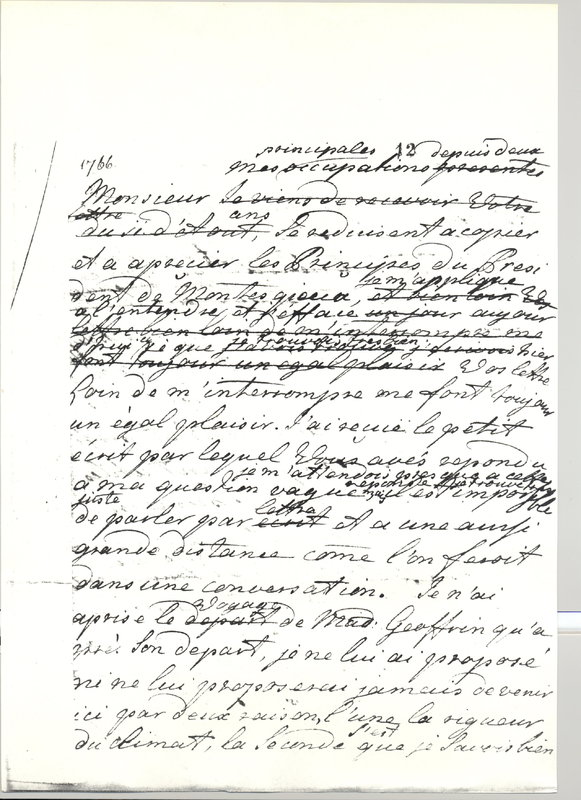 1766.
principales 12 depuis deux
mes occupations presentes
Monsieur Je viens de recevoir Votre
lettre ans
du si d'Aout, Se reduisent a copier
et a aprecier les Principes du Presi
je m'applique
dent de Montesqieiu, et bien loin
a l'entendre, et j'efface un jour aujour
lettre bien loin de m'interrompre me
d'hui ce que je trouvois tres bien hier
font toujour un egal plaisir Vos lettre
Loin de m'interrompre me font toujour
un égal plaisir. J'ai reçue le petit
écrit par lequel Vous avés repondu
je m'attendois presque a cette
a ma question vague mais il est impossible
juste
de parler par lettre écrit et a une aussi
grande distance come l'on feroit
dans une conversation. Je n'ai
Voyage
aprise le depart de Mad. Geoffrin qu'a
prés Son depart, je ne lui ai proposé
ni ne lui proposerai jamais de venir
ici par deux raison, l'une la rigueur
du climat, la Seconde c'est que je Savois bien